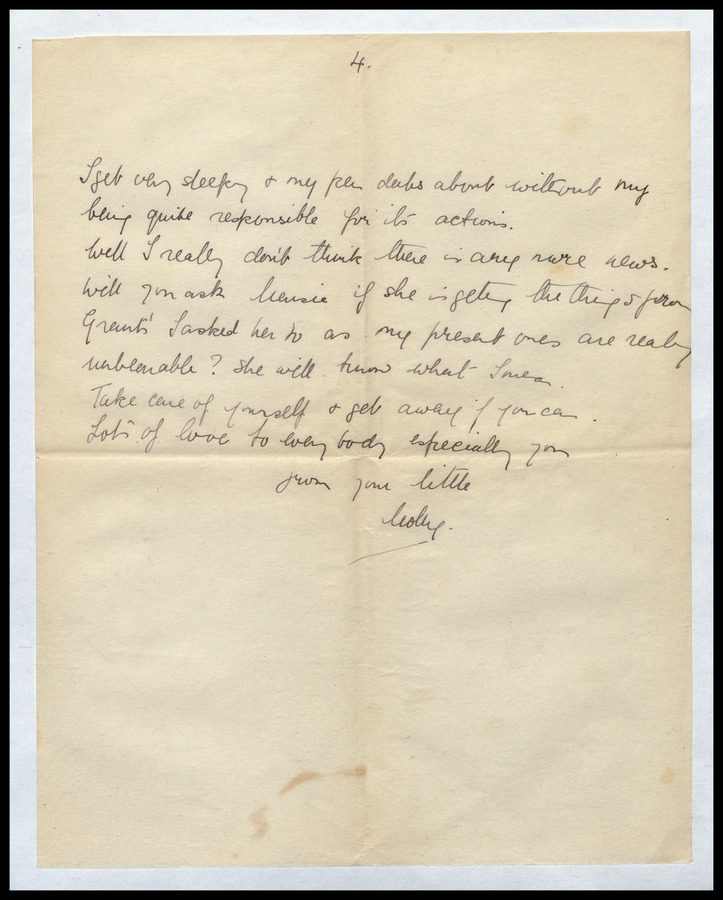 4.
I get very sleepy & my pen dabs about without my
being quite responsible for its actions.
Well I really don't think there is any more news.
Will you ask if she is getting the things from
Grants' I asked her to as my present ones are really
unbearable? She will know what I mean.
Take care of yourself & get away if you can.
Lots of love to everybody especially you
from your little
Molly.